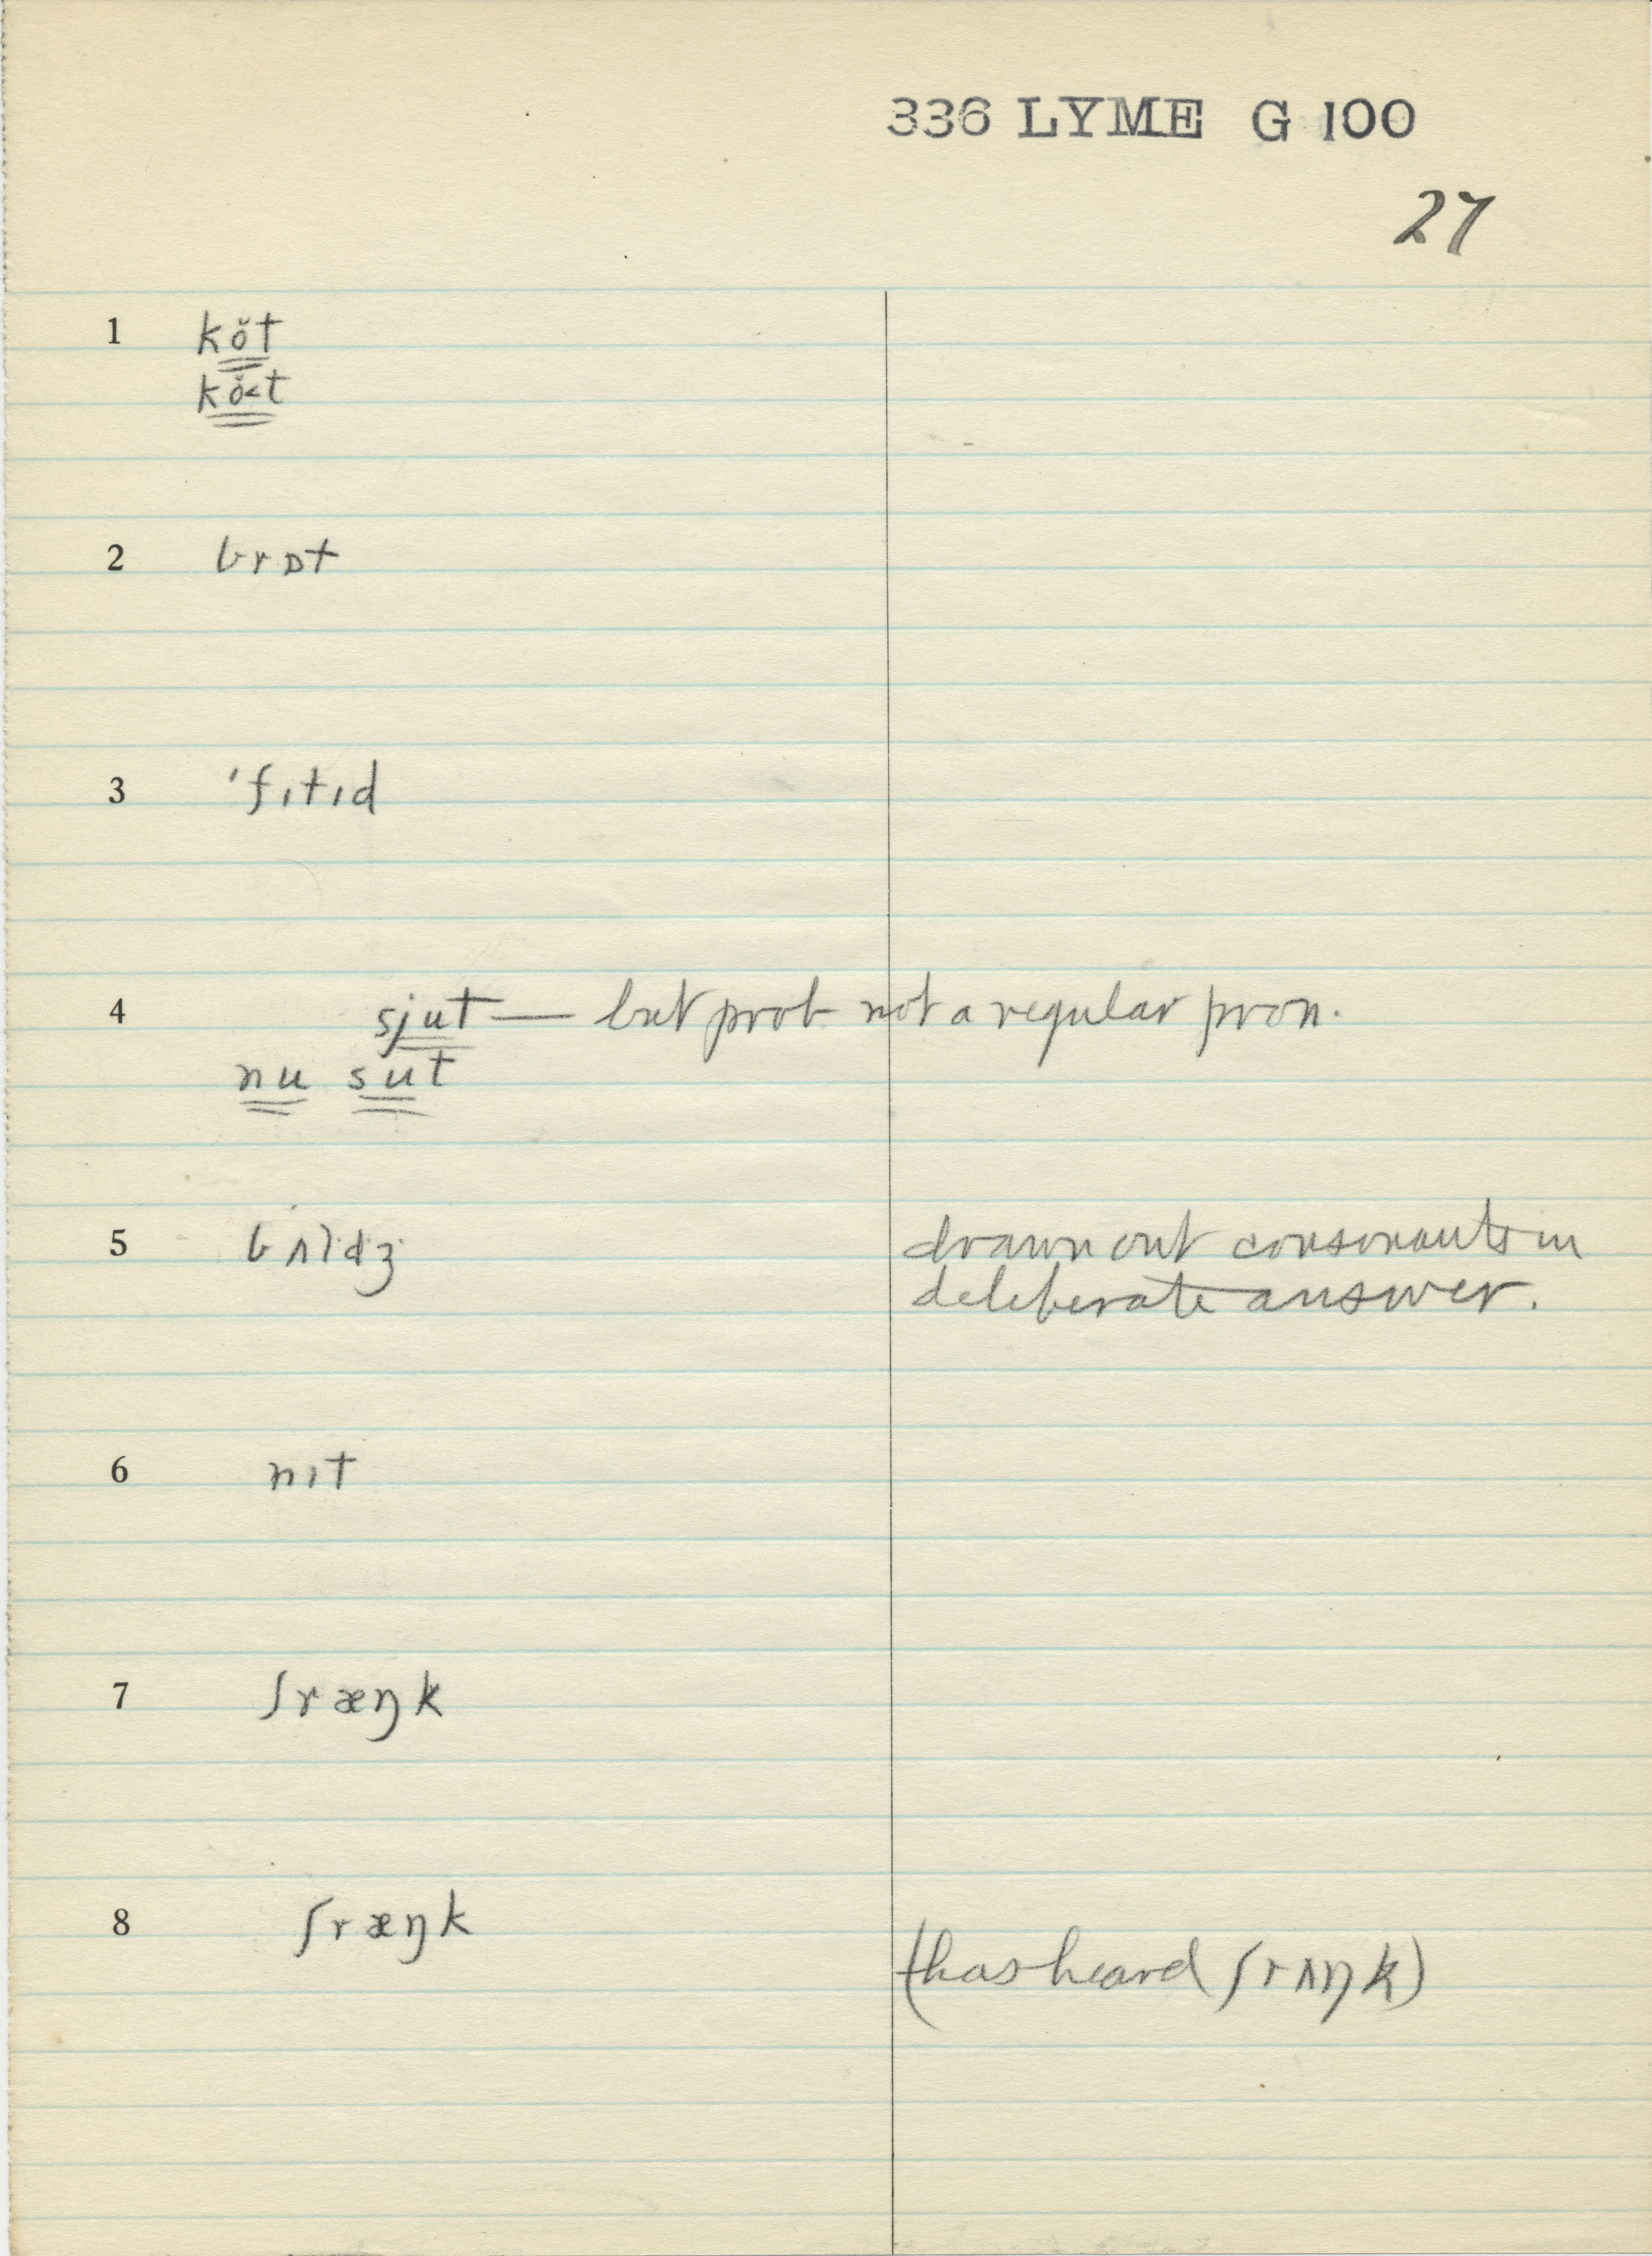 336 LYME G 100
27
1 kŏt
kŏ˂t
2 brɒt
3 ˈfɪtɪd
4 sjut — but prob not a regular pron.
nu sut
5 bʌl·d·ʒ· drawn out consonants in
deliberate answer.
6 nɪt
7 ʃræŋk
8 ʃræŋk
(has heard ʃrʌŋk)